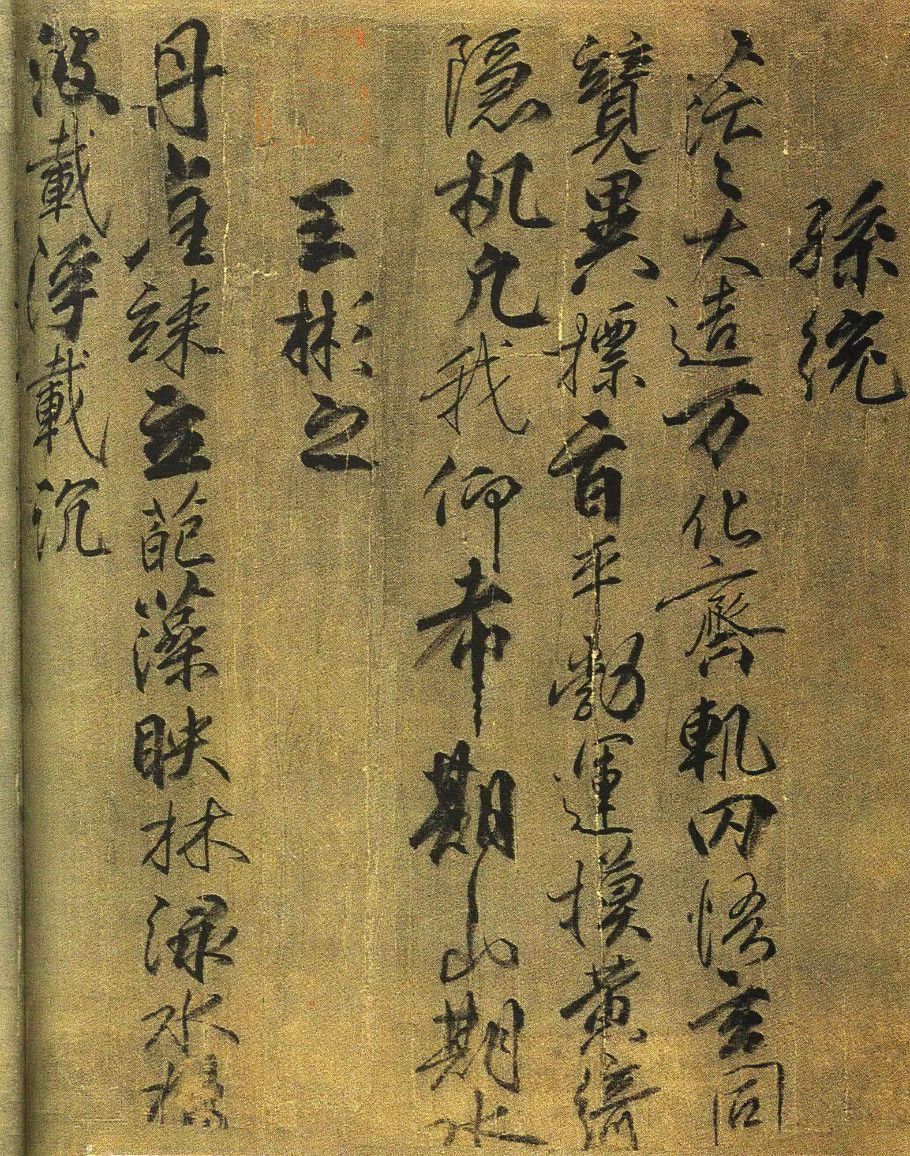 孫統
茫〻大造万化齊軌罔悟玄同
競異摽旨平勃運摸黃綺
隱机凡我仰希期山期水
王彬之
丹崖竦立葩藻映林淥水揚
波載浮載沉